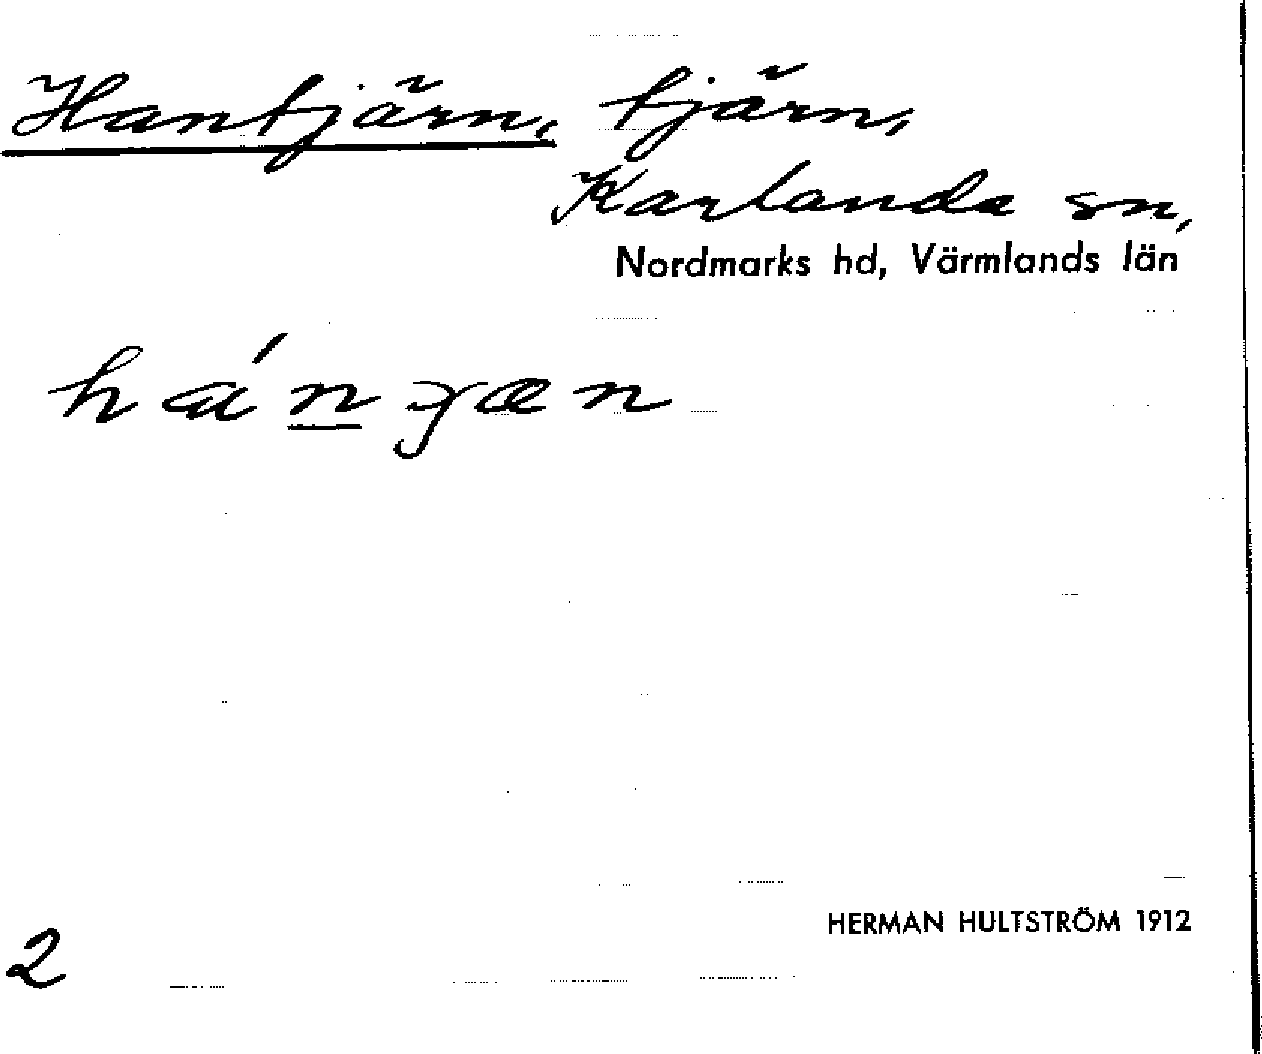 Hantjärn, tjärn,
Karlanda sn,
Nordmarks hd, Värmlands län
HERMAN HULTSTRÖM 1912
2